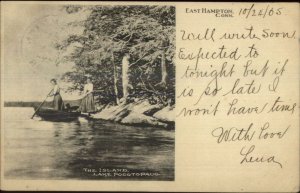 EAST HAMPTON,
CONN.
10/22/05
Will write Soon
Expected to
tonight but it
is so late I
won't have time
With Love
Lena
THE ISLAND,
LAKE POCOTOPAUG.